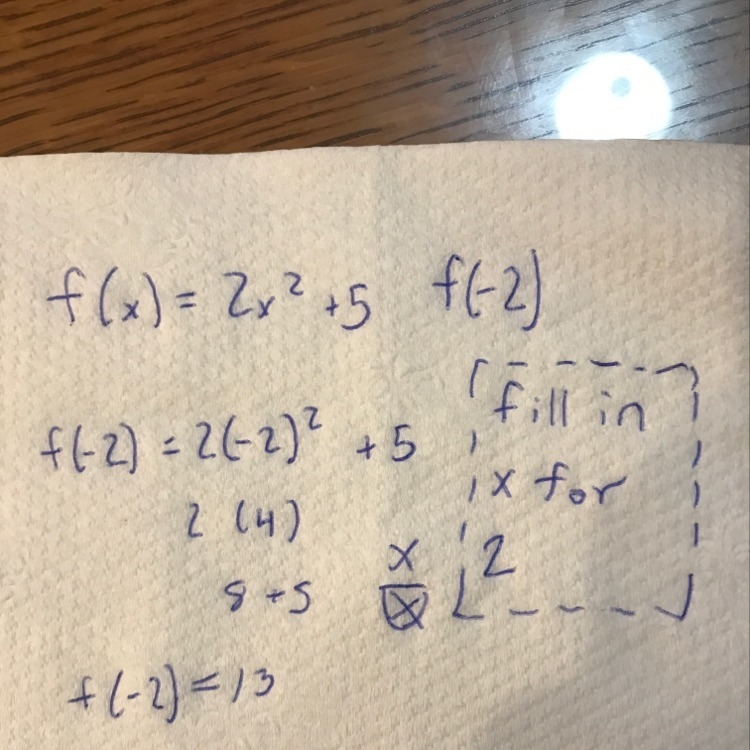 f(x) = 2x² + 5
f(-2)
f(-2) = 2(-2)² + 5
2 (4)
8 + 5
f(-2) = 13
fill in
x for
2
x
x